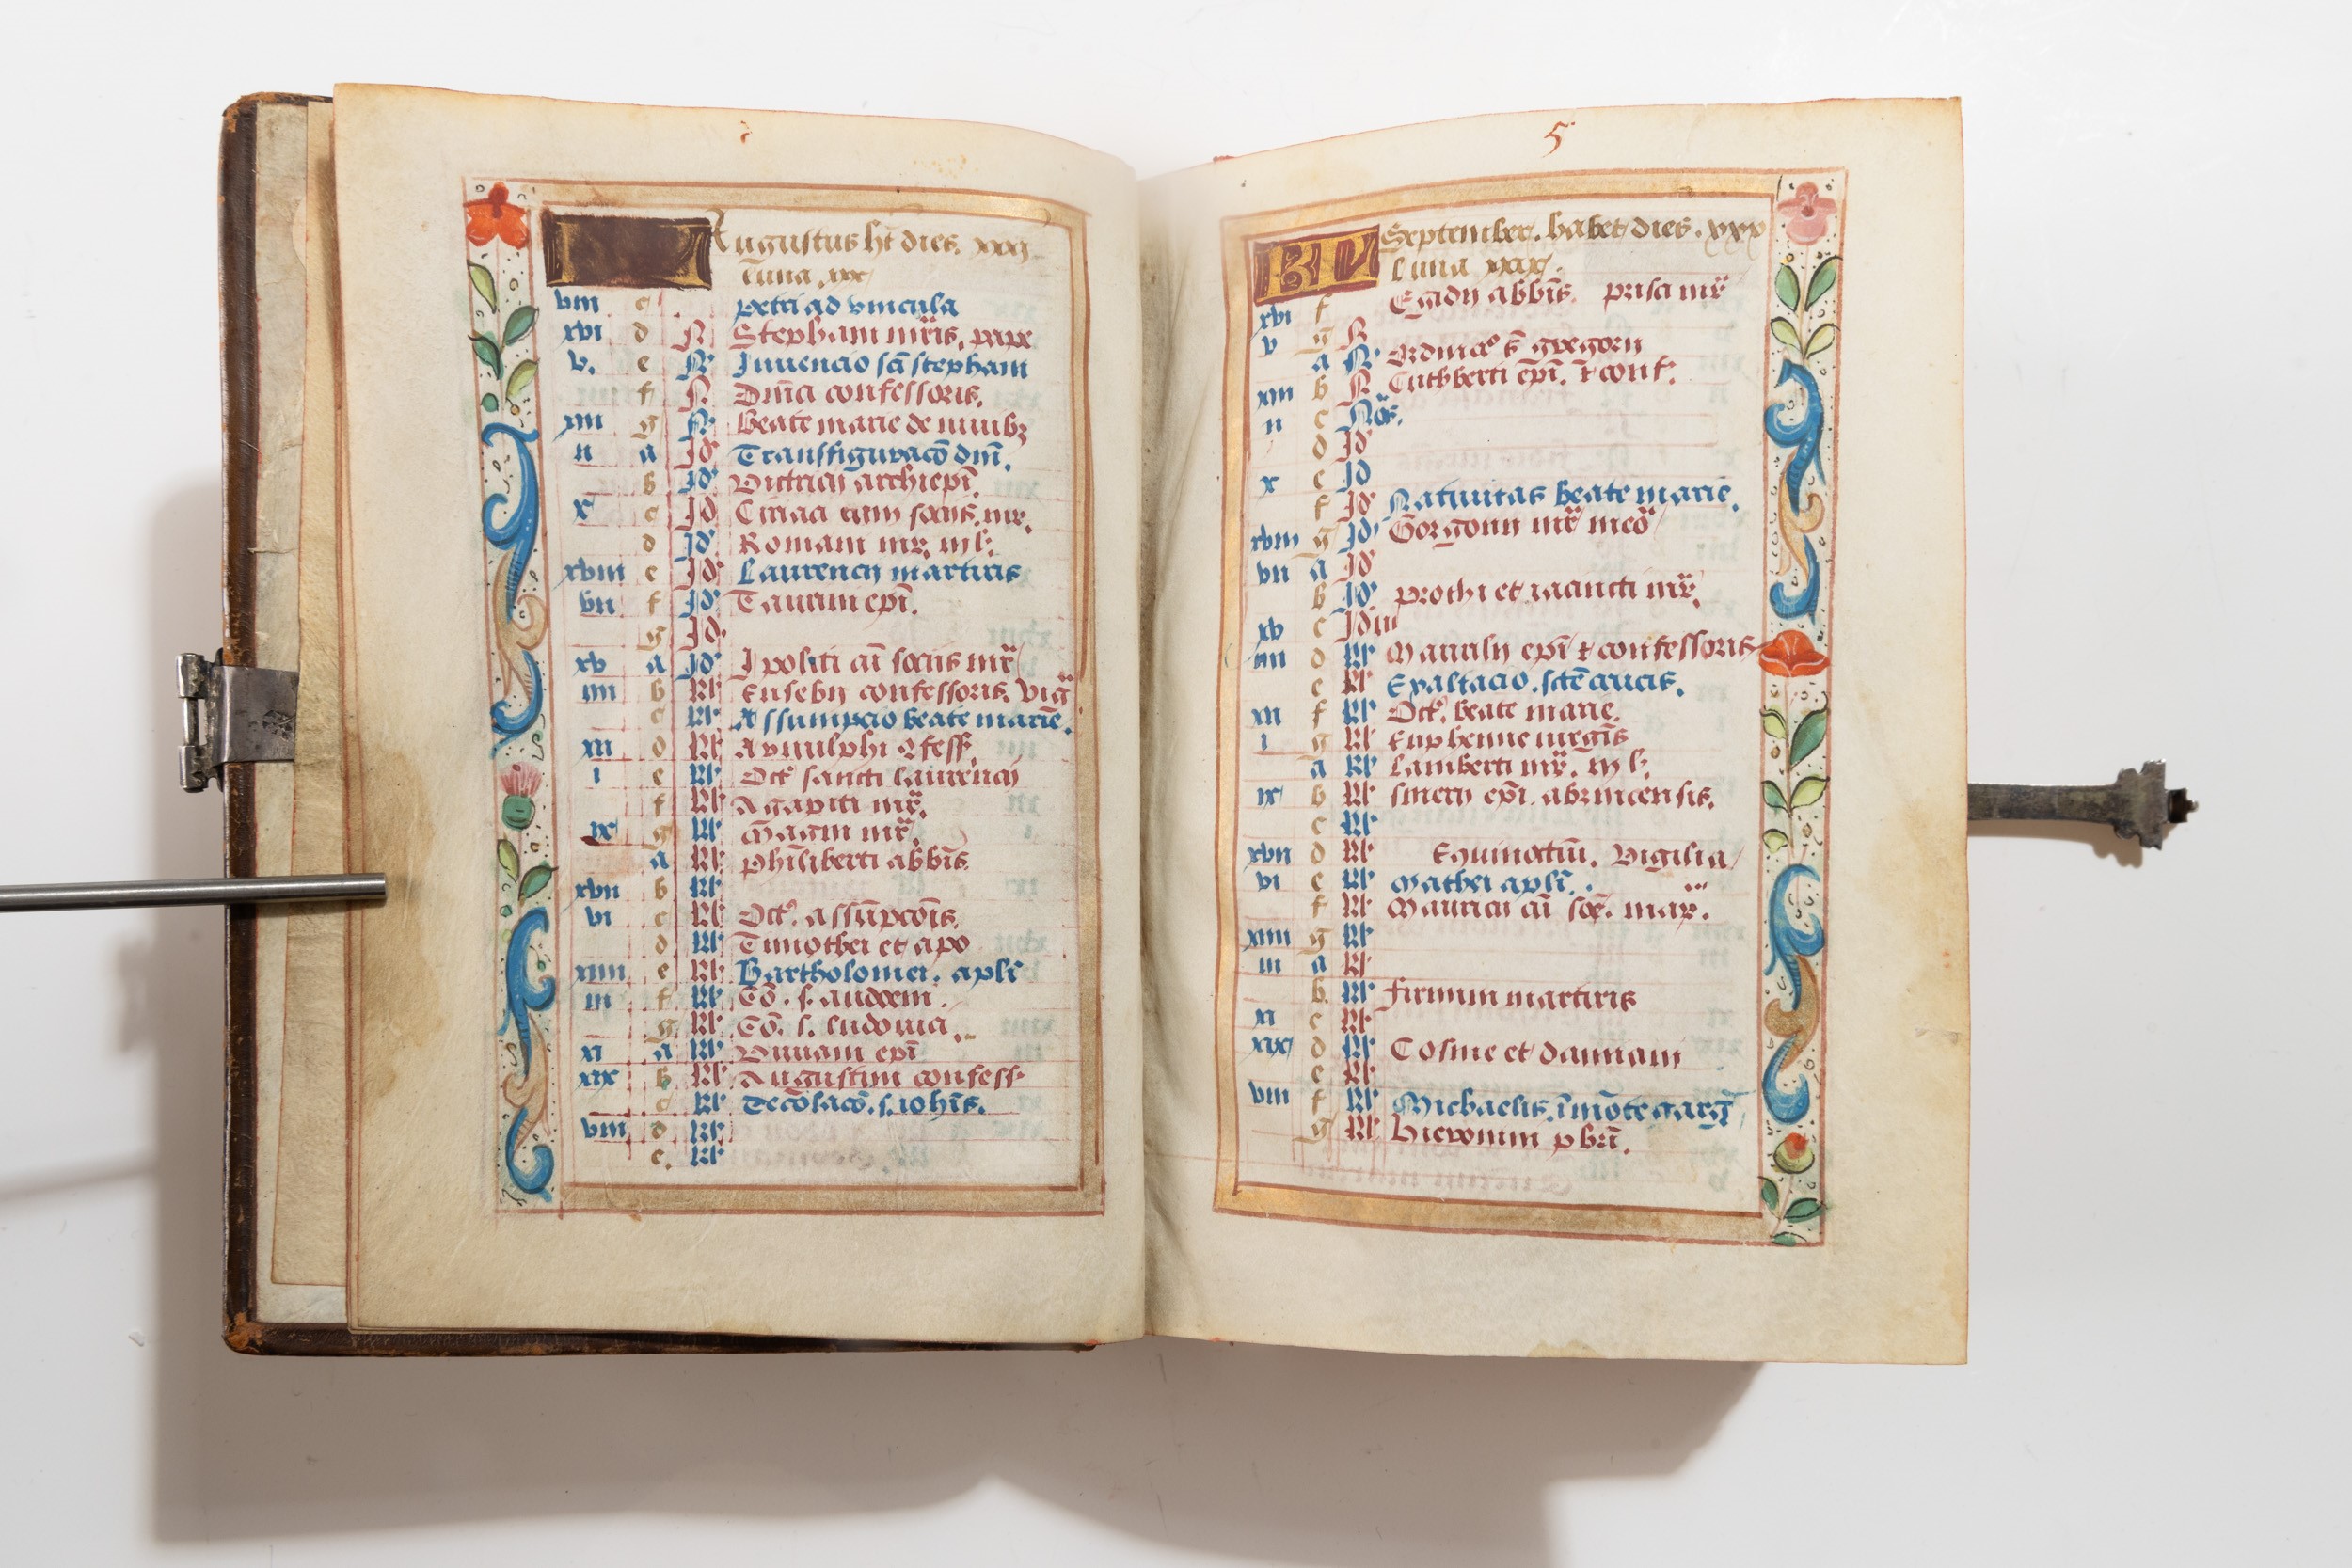 Augustus ht dies. xxxj.
luna. xxx
viii c petri ad vincula
xvi d N Stephani mris. pape
v. e N Inuencio sci stephani
f N Dnica confessoris.
xiii g N Beate marie de niuibz
ii a Id Transfiguraco dni.
b Id Victricii archiepi.
x c Id Ciriaci cum sociis. mr.
d Id Romani mr. iij l.
xviii e Id Laurencij martiris
vii f Id Taurini epi.
g Id.
xv a Id Ipoliti cu sociis mr
iiii b Kl Eusebij confessoris. vig
c Kl Assumpcio beate marie.
xii d Kl Arnulphi cfess.
i e Kl Oct sancti laurencij
f Kl Agapiti mr.
ix g Kl Magni mr.
a Kl Philiberti abbis
xvii b Kl
vi c Kl Oct. assupcois.
d Kl Timothei et apo
xiiii e Kl Bartholomei. apli
iii f Kl Co. s. audoeni.
g Kl Co. s. ludouici.
xi a Kl epi
xix b Kl Augustini confess
c Kl Decolaco. s. iohis.
viii d Kl
e. Kl
5
KL September. habet dies. xxx
Luna xxix.
xvi f Egidij abbis. prisci mr
v g N
a N Ordinao s gregorij
xiii b N Cuthberti epi. & conf.
ii c Nos.
d Id
x e Id
f Id Natiuitas beate marie.
xviii g Id Gorgonij mr
vii a Id
b Id prothi et iacincti mr.
xv c Idus
iiii d Kl Maurilij epi & confessoris
e Kl Exaltacio. scte crucis.
xii f Kl Oct. beate marie.
i g Kl Euphemie uirgis
a Kl Lamberti mr. iij l.
ix b Kl sinerij epi. abrincensis.
c Kl
xvii d Kl Equinoctiu. Vigilia
vi e Kl Mathei apli.
f Kl Mauricii cu soc. mar.
xiiii g Kl
iii a Kl
b. Kl firmini martiris
xi c Kl
xix d Kl Cosme et damiani
e Kl
viii f Kl Michaelis. i mote garg
g Kl hieronimi pbri.